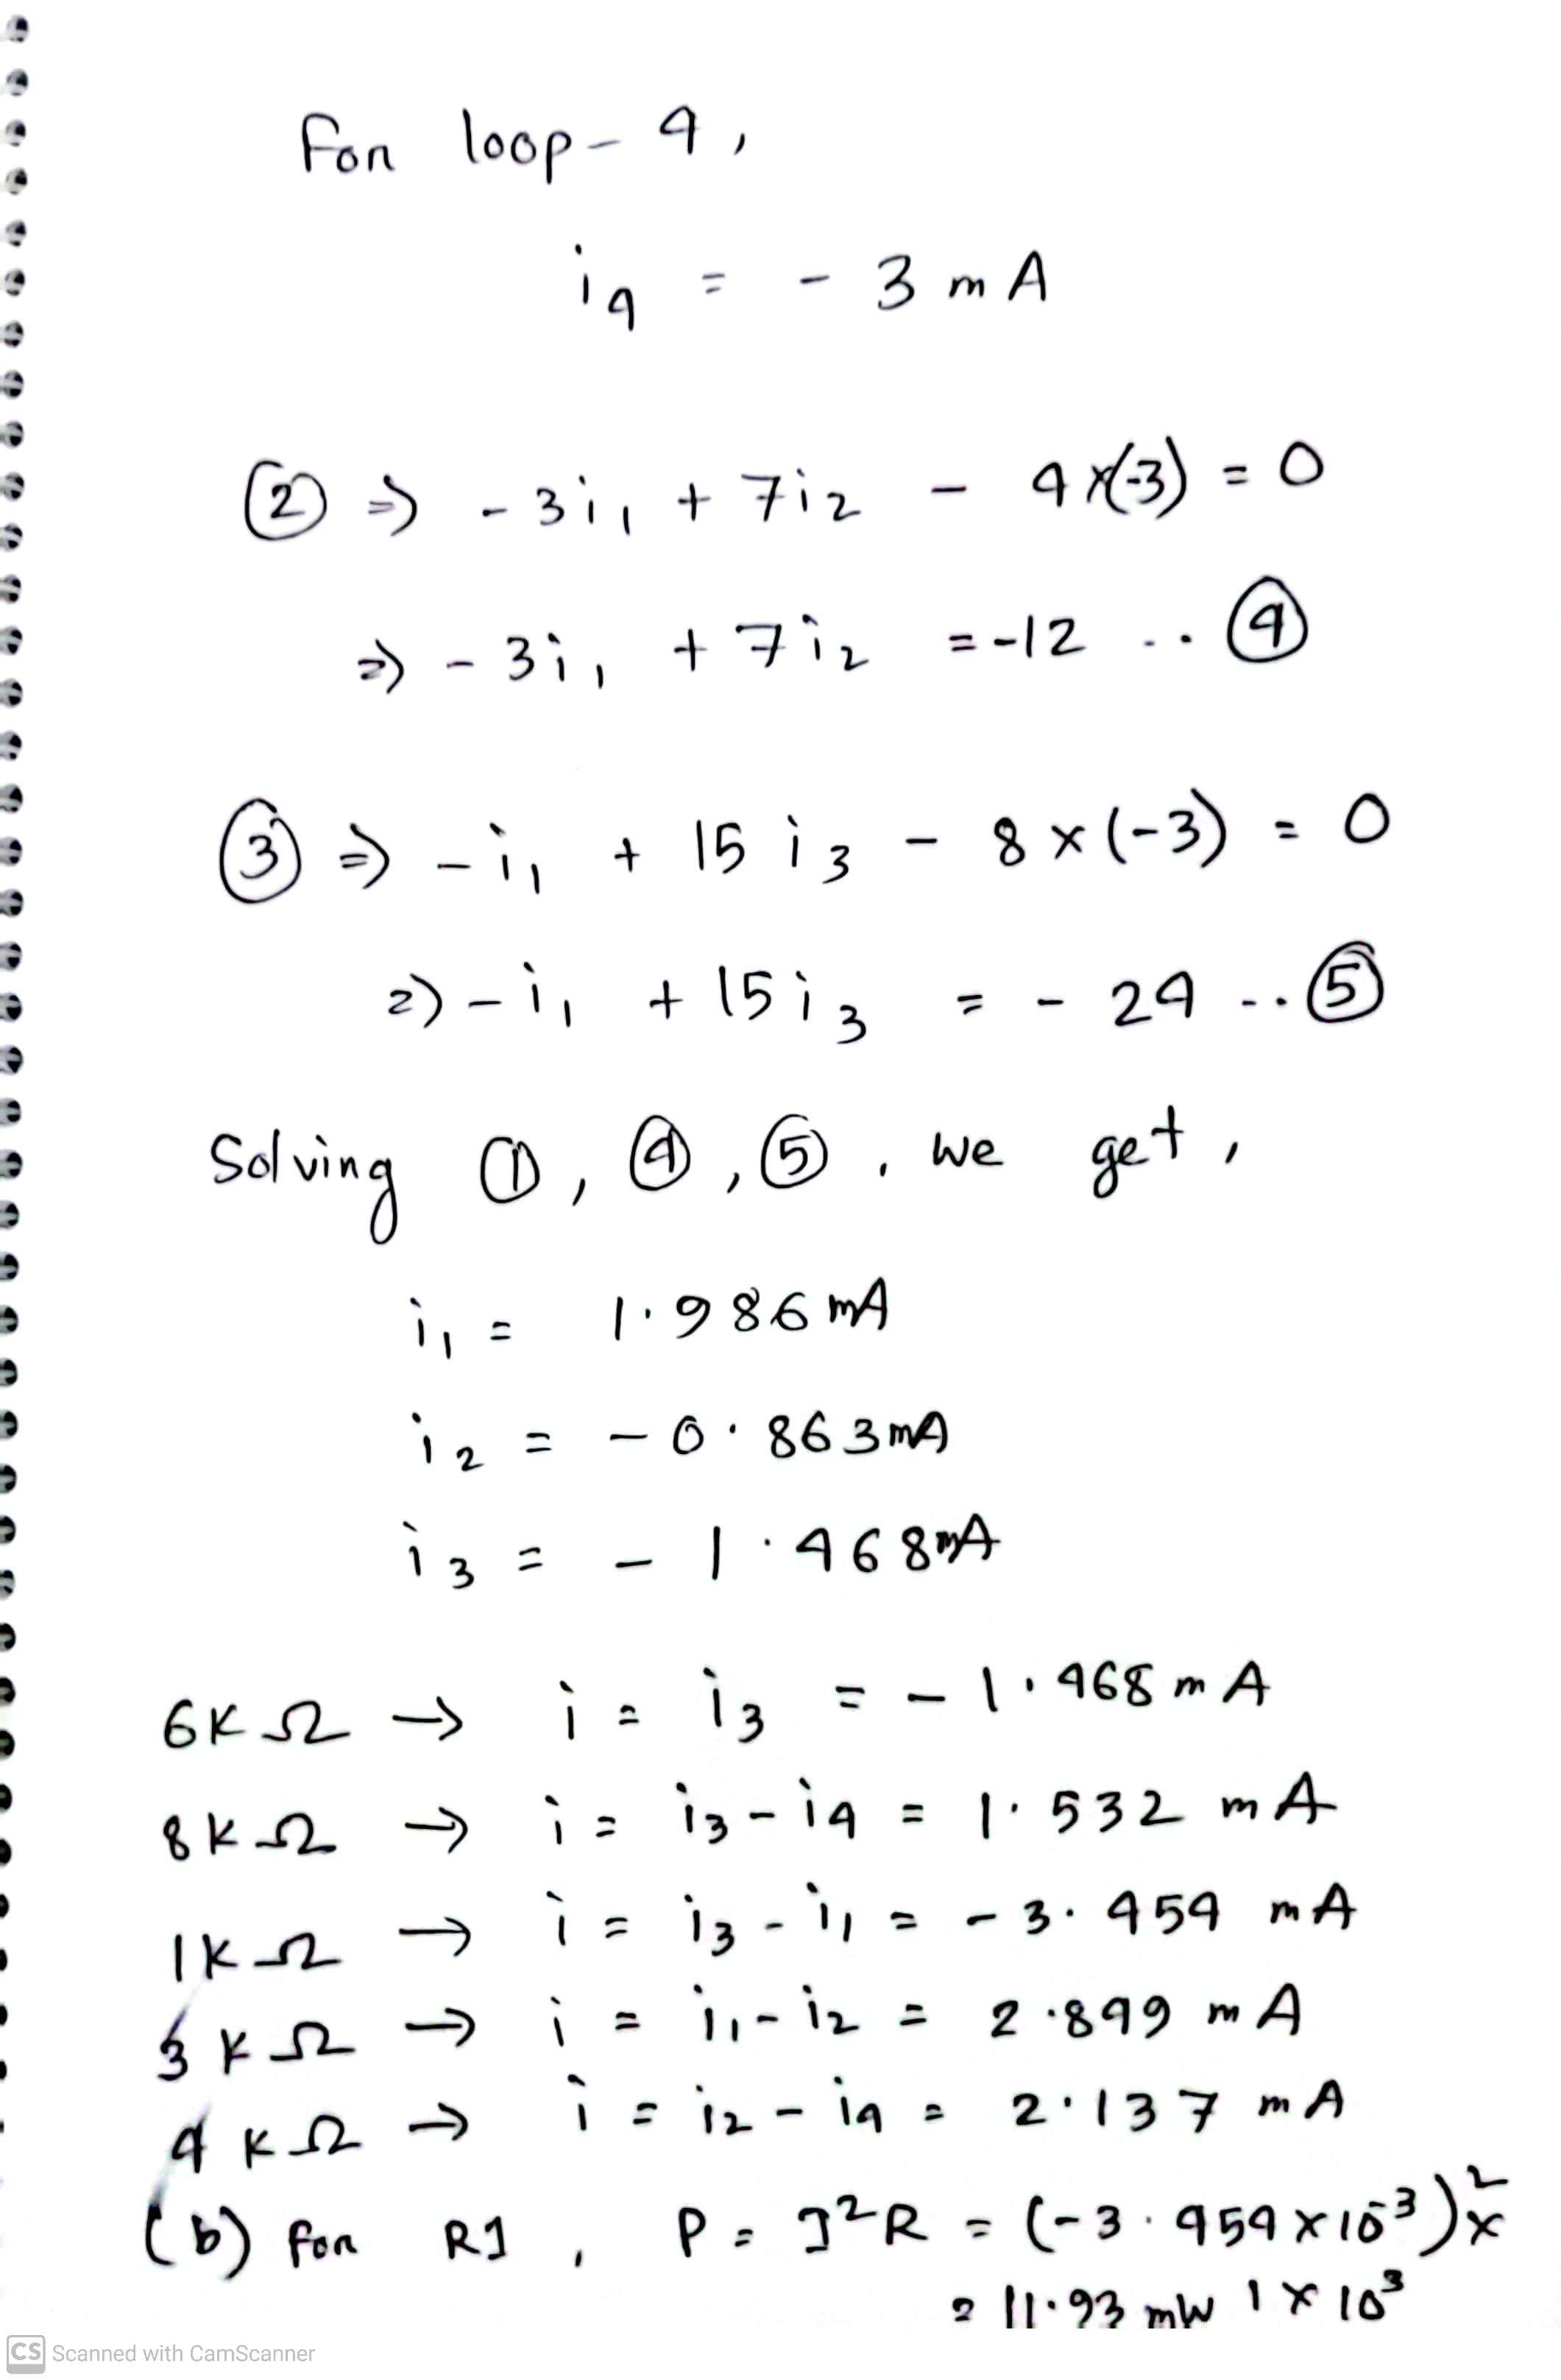 For loop-4,
i4 = - 3 mA
② ⇒ - 3i1 + 7i2 - 4×(-3) = 0
⇒ - 3i1 + 7i2 = -12 .. ④
③ ⇒ - i1 + 15 i3 - 8 × (-3) = 0
⇒ - i1 + 15 i3 = - 24 .. ⑤
Solving ①, ④, ⑤, we get,
i1 = 1.986 mA
i2 = - 0.863 mA
i3 = - 1.468 mA
6KΩ → i = i3 = - 1.468 mA
8KΩ → i = i3 - i4 = 1.532 mA
1KΩ → i = i3 - i1 = - 3.454 mA
3KΩ → i = i1 - i2 = 2.849 mA
4KΩ → i = i2 - i4 = 2.137 mA
(b) for R1, P = I²R = (-3.454 × 10⁻³)² ×
= 11.93 mW 1 × 10³
CS Scanned with CamScanner